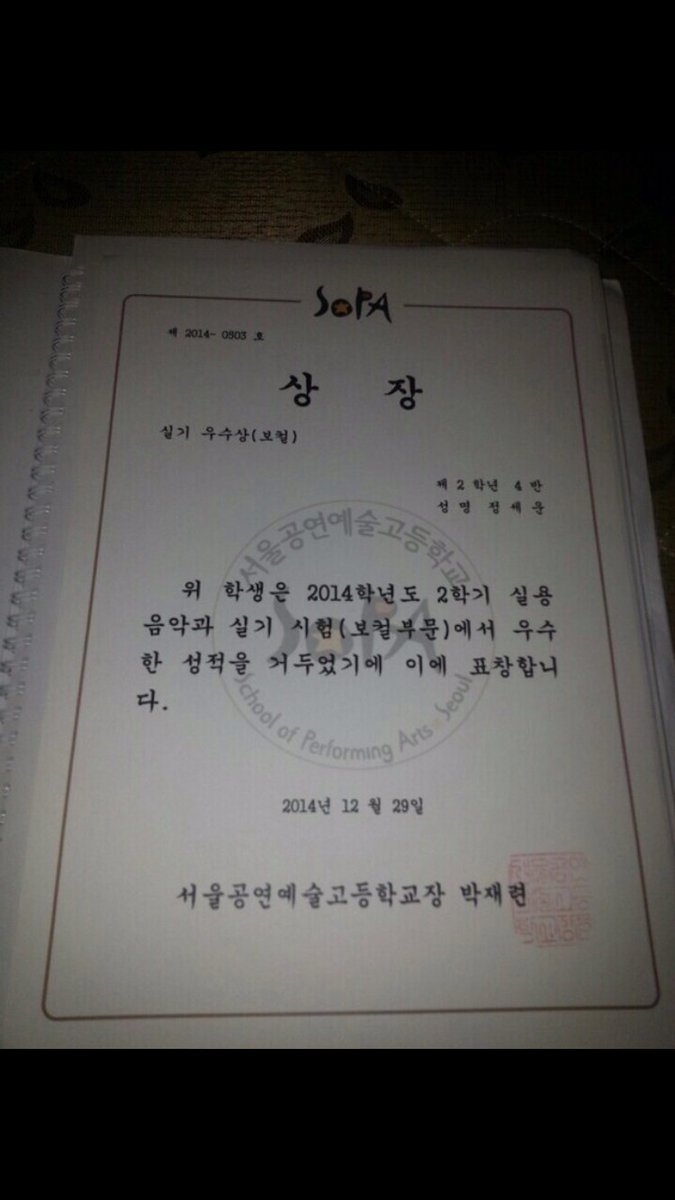 SoPA
제 2014- 0503 호
상 장
실기 우수상(보컬)
제 2 학년 4 반
성 명 정 세 운
위 학생은 2014학년도 2학기 실용
음악과 실기 시험(보컬부문)에서 우수
한 성적을 거두었기에 이에 표창합니
다.
서울공연예술고등학교
SoPA
School of Performing Arts Seoul
2014년 12 월 29일
서울공연예술고등학교장 박재련